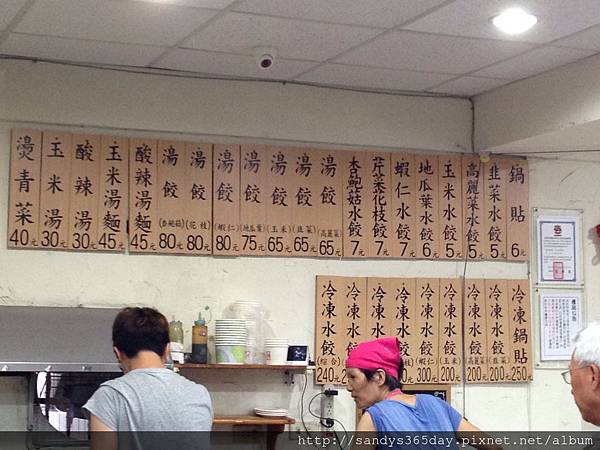 鍋貼 6元
韭菜水餃 5元
高麗菜水餃 5元
玉米水餃 5元
地瓜葉水餃 6元
蝦仁水餃 7元
芹菜花枝水餃 7元
杏鮑菇水餃 7元
湯餃(高麗菜) 65元
湯餃(韭菜) 65元
湯餃(玉米) 65元
湯餃(地瓜葉) 75元
湯餃(蝦仁) 80元
湯餃(花枝) 80元
湯餃(杏鮑菇) 80元
酸辣湯麵 45元
玉米湯麵 45元
酸辣湯 30元
玉米湯 30元
燙青菜 40元
冷凍鍋貼 250元
冷凍水餃(韭菜) 200元
冷凍水餃(高麗菜) 200元
冷凍水餃(玉米)
冷凍水餃(蝦仁) 300
冷凍水餃
冷凍水餃
冷凍水餃
冷凍水餃(綜合) 240元
http://sandys365day.pixnet.net/album